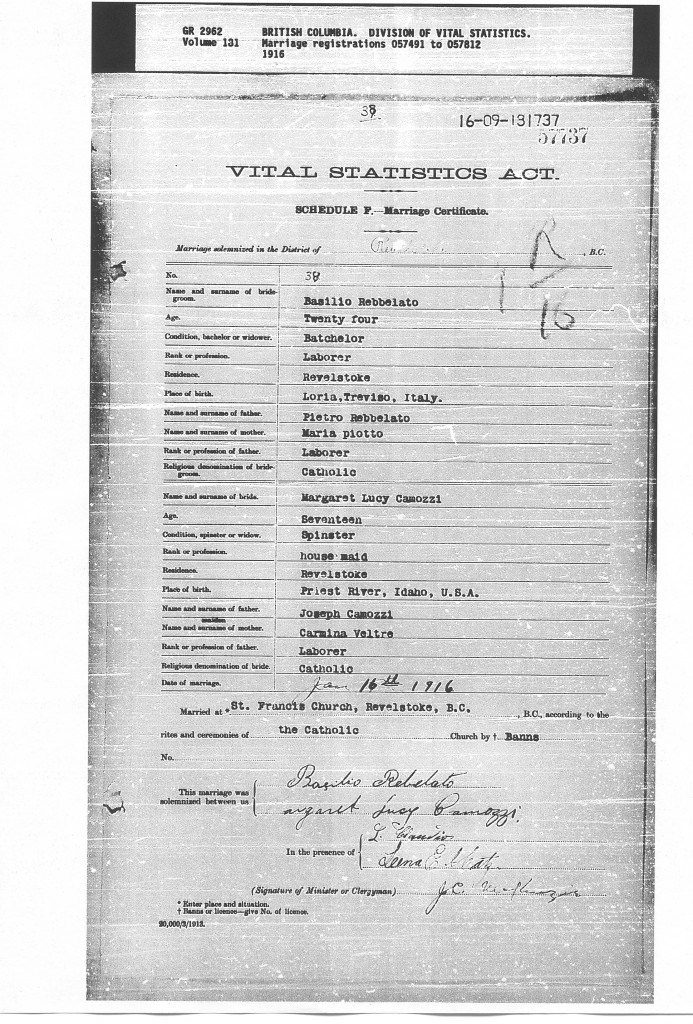 GR 2962 BRITISH COLUMBIA. DIVISION OF VITAL STATISTICS.
Volume 131 Marriage registrations 057491 to 057812
1916
38
16-09-131737
57737
VITAL STATISTICS ACT.
SCHEDULE F.—Marriage Certificate.
Marriage solemnized in the District of , B.C.
R
16
No. 38
Name and surname of bride-
groom. Basilio Rebbelato
Age. Twenty four
Condition, bachelor or widower. Batchelor
Rank or profession. Laborer
Residence. Revelstoke
Place of birth. Loria,Treviso, Italy.
Name and surname of father. Pietro Rebbelato
Name and surname of mother. Maria piotto
Rank or profession of father. Laborer
Religious denomination of bride-
groom. Catholic
Name and surname of bride. Margaret Lucy Camozzi
Age. Seventeen
Condition, spinster or widow. Spinster
Rank or profession. house maid
Residence. Revelstoke
Place of birth. Priest River, Idaho, U.S.A.
Name and surname of father. Joseph Camozzi
maiden
Name and surname of mother. Carmina Veltre
Rank or profession of father. Laborer
Religious denomination of bride. Catholic
Date of marriage. Jan 16th 1916
Married at * St. Francis Church, Revelstoke, B.C. , B.C., according to the
rites and ceremonies of the Catholic Church by † Banns
No.
This marriage was
solemnized between us
Basilio Rebelato
argaret Lucy Camozzi.
In the presence of
L.
Leena E.
(Signature of Minister or Clergyman) J.C.
* Enter place and situation.
† Banns or licence—give No. of licence.
20,000/3/1913.